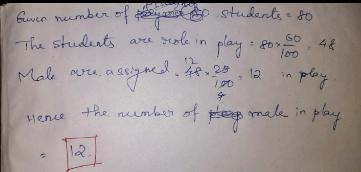 Given number of students = 80
The students are role in play = 80 × 60/100 = 48
Male are assigned = 48 × 25/100 = 12 in play
12
4
Hence the number of male in play
= 12.